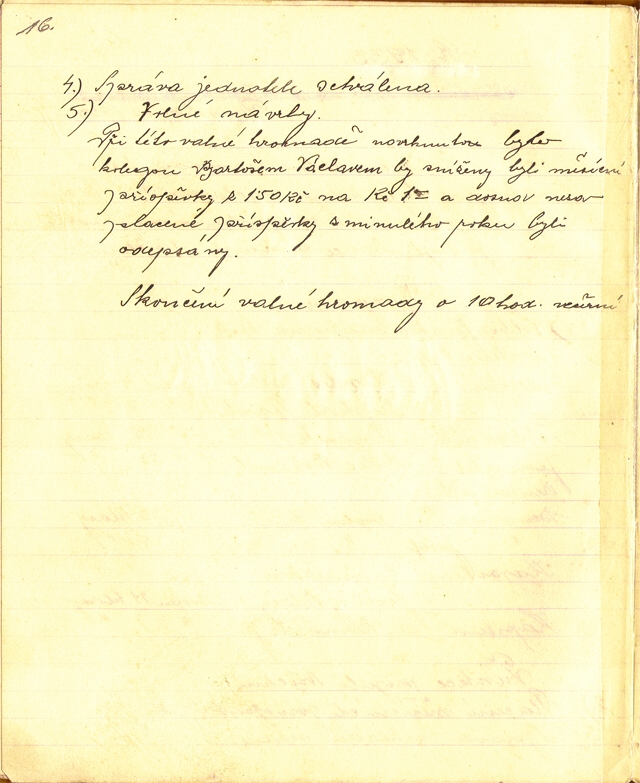 16.
4.) Správa jednatele schválena.
5.) Volné návrhy.
Při této valné hromadě navrhnuto bylo
kolegou Bartošem Václavem by sníženy byli měsíční
příspěvky z 1·50 Kč na Kč 1= a dosud neza-
placené příspěvky z minulého roku byli
odepsány.
Skončení valné hromady o 10 hod. večerní